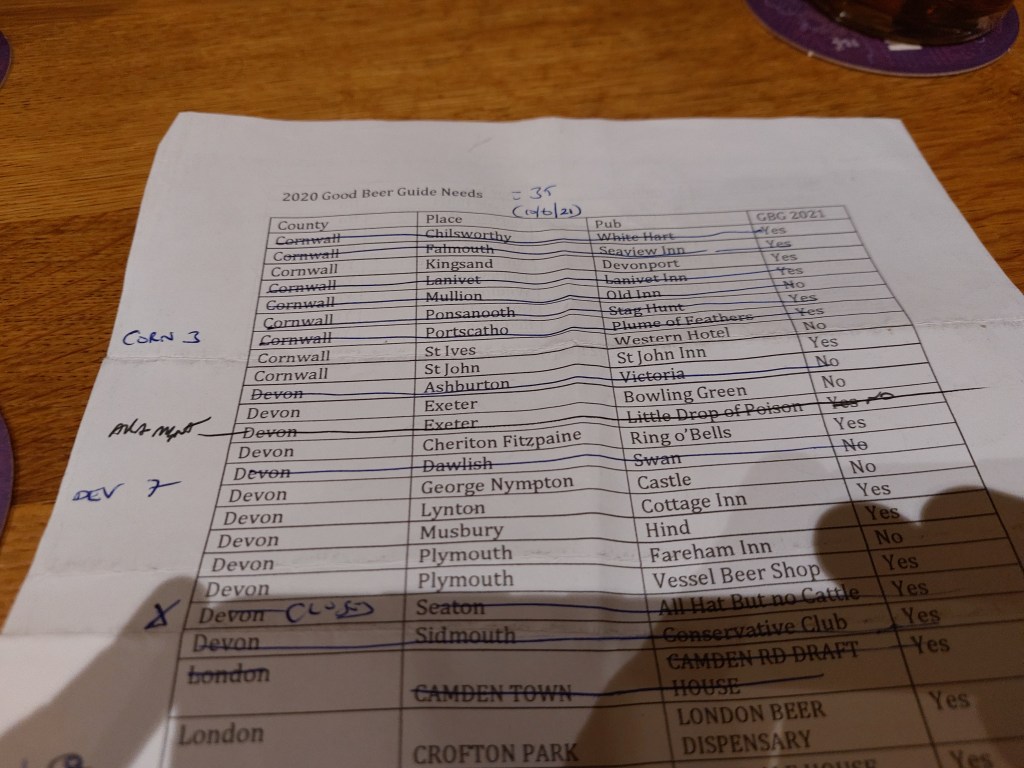 2020 Good Beer Guide Needs = 35
(10/6/21)
County Place Pub GBG 2021
Cornwall Chilsworthy White Hart Yes
Cornwall Falmouth Seaview Inn Yes
Cornwall Kingsand Devonport Yes
Cornwall Lanivet Lanivet Inn Yes
Cornwall Mullion Old Inn No
Cornwall Ponsanooth Stag Hunt Yes
Cornwall Portscatho Plume of Feathers Yes
CORN 3
Cornwall St Ives Western Hotel No
Cornwall St John St John Inn Yes
Devon Ashburton Victoria No
Devon Exeter Bowling Green No
Devon Exeter Little Drop of Poison Yes No
Devon Cheriton Fitzpaine Ring o'Bells Yes
Devon Dawlish Swan No
DEV 7
Devon George Nympton Castle No
Devon Lynton Cottage Inn Yes
Devon Musbury Hind Yes
Devon Plymouth Fareham Inn No
Devon Plymouth Vessel Beer Shop Yes
X Devon CLOSED Seaton All Hat But no Cattle Yes
Devon Sidmouth Conservative Club Yes
London CAMDEN TOWN CAMDEN RD DRAFT HOUSE Yes
London CROFTON PARK LONDON BEER DISPENSARY Yes
HOUSE Yes